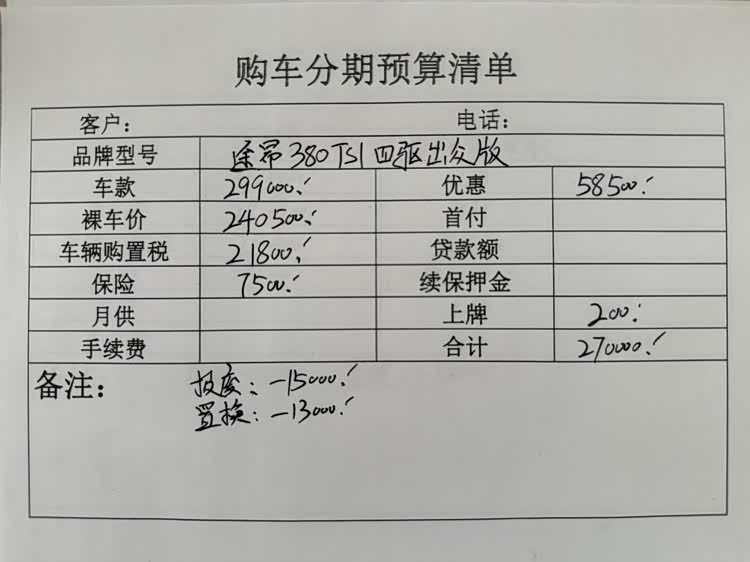 购车分期预算清单
客户： 电话：
品牌型号 途昂380TSI四驱出众版
车款 299000.- 优惠 58500.-
裸车价 240500.- 首付
车辆购置税 21800.- 贷款额
保险 7500.- 续保押金
月供 上牌 200.-
手续费 合计 270000.-
备注： 报废：-15000.-
置换：-13000.-